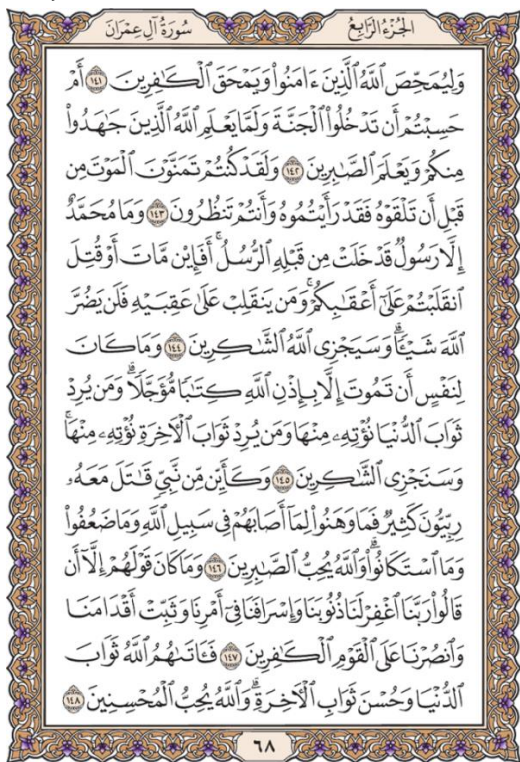 الجُزْءُ الرَّابِعُ سُورَةُ آلِ عِمْرَانَ
وَلِيُمَحِّصَ ٱللَّهُ ٱلَّذِينَ ءَامَنُوا۟ وَيَمْحَقَ ٱلْكَـٰفِرِينَ ١٤١ أَمْ
حَسِبْتُمْ أَن تَدْخُلُوا۟ ٱلْجَنَّةَ وَلَمَّا يَعْلَمِ ٱللَّهُ ٱلَّذِينَ جَـٰهَدُوا۟
مِنكُمْ وَيَعْلَمَ ٱلصَّـٰبِرِينَ ١٤٢ وَلَقَدْ كُنتُمْ تَمَنَّوْنَ ٱلْمَوْتَ مِن
قَبْلِ أَن تَلْقَوْهُ فَقَدْ رَأَيْتُمُوهُ وَأَنتُمْ تَنظُرُونَ ١٤٣ وَمَا مُحَمَّدٌ
إِلَّا رَسُولٌ قَدْ خَلَتْ مِن قَبْلِهِ ٱلرُّسُلُ ۚ أَفَإِي۟ن مَّاتَ أَوْ قُتِلَ
ٱنقَلَبْتُمْ عَلَىٰٓ أَعْقَـٰبِكُمْ ۚ وَمَن يَنقَلِبْ عَلَىٰ عَقِبَيْهِ فَلَن يَضُرَّ
ٱللَّهَ شَيْـًٔا ۗ وَسَيَجْزِى ٱللَّهُ ٱلشَّـٰكِرِينَ ١٤٤ وَمَا كَانَ
لِنَفْسٍ أَن تَمُوتَ إِلَّا بِإِذْنِ ٱللَّهِ كِتَـٰبًا مُّؤَجَّلًا ۗ وَمَن يُرِدْ
ثَوَابَ ٱلدُّنْيَا نُؤْتِهِۦ مِنْهَا وَمَن يُرِدْ ثَوَابَ ٱلْـَٔاخِرَةِ نُؤْتِهِۦ مِنْهَا ۚ
وَسَنَجْزِى ٱلشَّـٰكِرِينَ ١٤٥ وَكَأَيِّن مِّن نَّبِىٍّ قَـٰتَلَ مَعَهُۥ
رِبِّيُّونَ كَثِيرٌ فَمَا وَهَنُوا۟ لِمَآ أَصَابَهُمْ فِى سَبِيلِ ٱللَّهِ وَمَا ضَعُفُوا۟
وَمَا ٱسْتَكَانُوا۟ ۗ وَٱللَّهُ يُحِبُّ ٱلصَّـٰبِرِينَ ١٤٦ وَمَا كَانَ قَوْلَهُمْ إِلَّآ أَن
قَالُوا۟ رَبَّنَا ٱغْفِرْ لَنَا ذُنُوبَنَا وَإِسْرَافَنَا فِىٓ أَمْرِنَا وَثَبِّتْ أَقْدَامَنَا
وَٱنصُرْنَا عَلَى ٱلْقَوْمِ ٱلْكَـٰفِرِينَ ١٤٧ فَـَٔاتَىٰهُمُ ٱللَّهُ ثَوَابَ
ٱلدُّنْيَا وَحُسْنَ ثَوَابِ ٱلْـَٔاخِرَةِ ۗ وَٱللَّهُ يُحِبُّ ٱلْمُحْسِنِينَ ١٤٨
٦٨